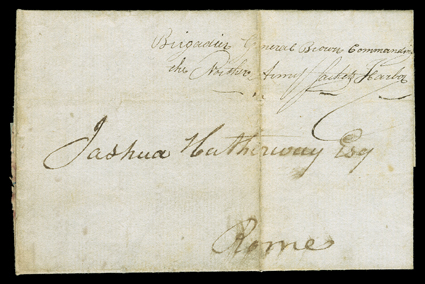 Birgadier General Brown Commanding
the Northern Army Sackets Harbor
Jashua Hatherway Esq
Rome